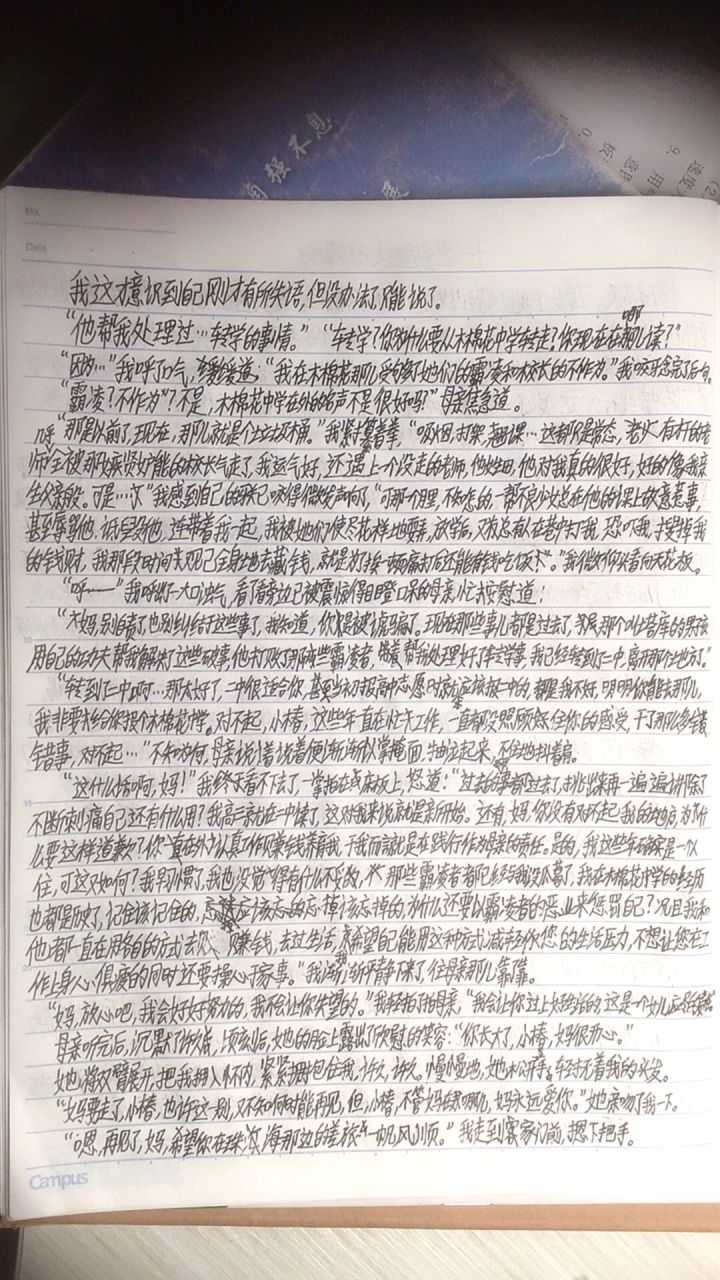 自强不息
No.
Date
我这才意识到自己刚才有所失语,但没办法了,只能说了。
“他帮我处理过…转学的事情。”“转学?你为什么要从木棉花中学转走?你现在在哪儿读?”
“因为…”我呼了口气,缓缓道:“我在木棉花那儿受够了她们的霸凌和校长的不作为。”我咬牙念完了后句。
“霸凌?不作为?不是,木棉花中学在外的名声不是很好吗?”母亲焦急道。
“那是以前了,现在,那儿就是个垃圾桶。”我紧攥着拳,“吸烟,打架,翘课…这都是常态,
师全被那嫉贤妒能的校长气走了,我运气好,还遇上一个没走的老师,他姓田,他对我真的很好,好的像我亲
生父亲般。可是…”我感到自己的牙已咬得微发声响了,“可那个班里,不知怎的,一帮不良少女总在他的课上故意惹事,
甚至辱骂他,诋毁他,连带着我一起,我被她们使尽花样地耍弄,放学后,又总有人在巷尾打我,恐吓我,
的钱财,我那段时间失
“呼——”我呼出了一大口浊气,看了看旁边已被震惊得目瞪口呆的母亲,忙安慰道:
用自己的功夫帮我解决了这些破事,他打败了那些霸凌者,帮我处理好了转学事,我已经转到二中,离开那个地方了。”
“转到二中啊…那太好了,二中很适合你,甚至当初报高中志愿时就应该报二中的,都是我不好,明明你能去那儿,
我非要求给你报个木棉花中学。对不起,小椿,这些年一直在忙于工作,一直都没照顾好你的感受,干了那么多错
错事,对不起…”不知为何,母亲说着说着便渐渐以掌掩面,抽泣起来,不住地抖着肩。
“这什么话啊,妈!”我终于看不下去了,一掌拍在床板上,怒道:“过去的事都过去了,挑出来再一遍遍讲除了
不断刺痛自己还有什么用?我高三就在二中读了,这对我来说就是新开始。还有,妈,你没有对不起我的地方,为什
么要这样道歉?你一直在外认真工作赚钱养着我,于我而言就是在践行作为母亲的责任。是的,我这些年确实是一人
住,可这又如何?我早习惯了,我也没觉得有什么不妥的,那些霸凌者都已经与我没瓜葛了,我在木棉花中学的经历
也都是历史了,记住该记住的,忘掉该忘掉的,为什么还要以霸凌者的恶业来惩罚自己?况且我和
他都一直在用各自的方式去赚钱,去过生活,希望自己能用这种方式减轻你您的生活压力,不想让您在工
作上身心俱疲的同时还要操心于家事。”我渐渐平静下来了,往母亲那儿靠靠。
“妈,放心吧,我会好好努力的,我不会让你失望的。”我轻拍了拍母亲,“我会让你过上好生活的,这是一个女儿应尽的责任。”
母亲听完后,沉默了许久,顷刻后,她的脸上露出了欣慰的笑容:“你长大了,小椿,妈很开心。”
她将双臂展开,把我拥入怀内,紧紧拥抱住我,许久,许久。慢慢地,她松开手,轻抚着我的头发。
“妈要走了,小椿,也许这一别,又不知何时能再见,但,小椿,不管妈在哪儿,妈永远爱你。”她亲吻了我一下。
“嗯,再见了,妈,希望你在珠滨海那边的差旅一帆风顺。”我走到客家门前,摁下把手。
Campus